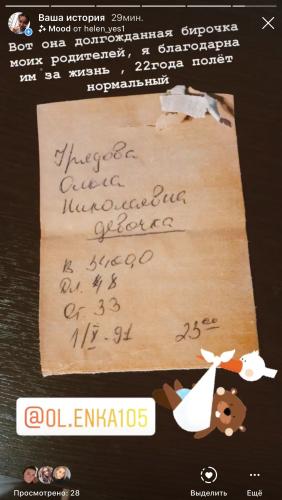 Ваша история 29мин.
Mood от helen_yes1
Вот она долгожданная бирочка
моих родителей, я благодарна
им за жизнь , 22года полёт
нормальный
Ольга
Николаевна
девочка
Дл. 48
Ог. 33
1/V-91 23⁰⁰
@OL.ENKA105
Просмотрено: 28
Выделить
Ещё